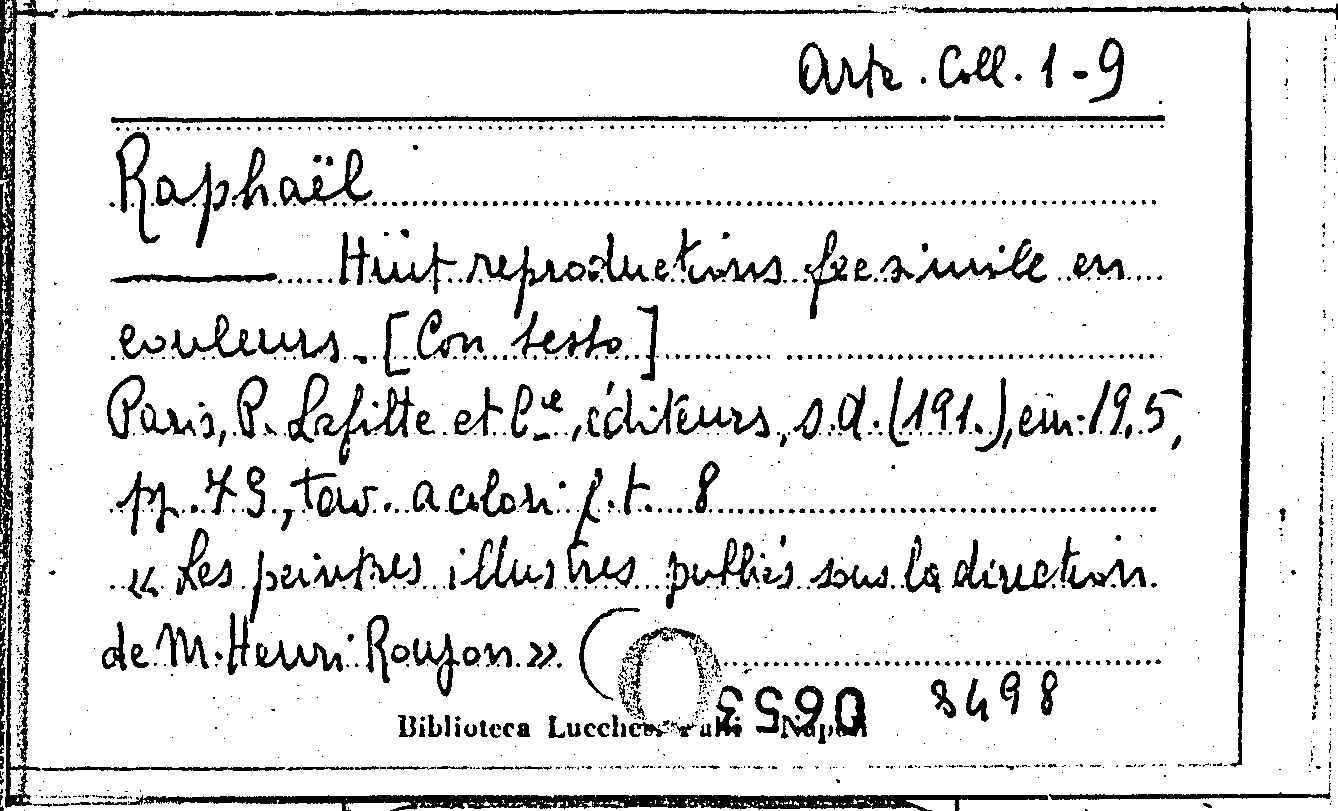 Arte. Coll. 1-9
Raphaël
Huit reproductions facsimile en
couleurs. [Con testo]
Paris, P. Lafitte et C.ie, éditeurs, s.d. (191.), cm. 19,5,
pp. 79, tav. a colori f.t. 8
« Les peintres illustres publiés sous la direction
de M. Henri Roujon » (
0653 8498
Biblioteca Lucchesi Palli - Napoli